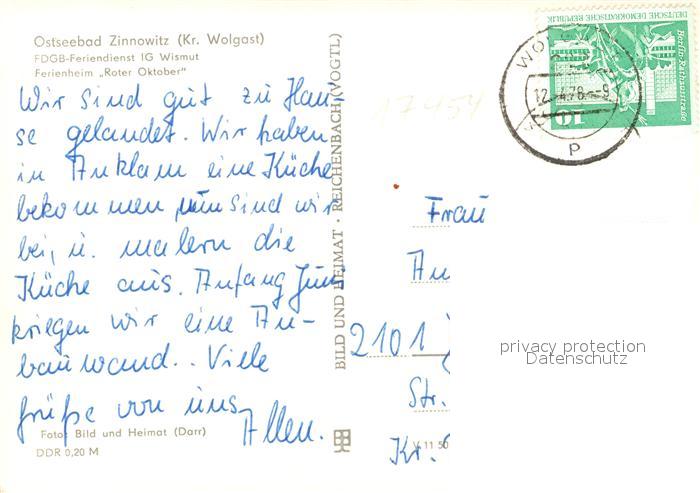 Ostseebad Zinnowitz (Kr. Wolgast)
FDGB-Feriendienst IG Wismut
Ferienheim „Roter Oktober"
Wir sind gut zu Hau-
se gelandet. Wir haben
in Anklam eine Küche
bekommen, nun sind wir
bei, u. malern die
Küche aus. Anfang Juni
kriegen wir eine An-
bauwand.. Viele
Grüße von uns
Allen.
Foto: Bild und Heimat (Darr)
DDR 0,20 M
BILD UND HEIMAT · REICHENBACH (VOGTL)
V 11 50
17454
DEUTSCHE DEMOKRATISCHE REPUBLIK
Berlin-Rathausstraße
10
12.-4.78.-9
P
Frau
An
2101
Str.
Kr.
privacy protection
Datenschutz